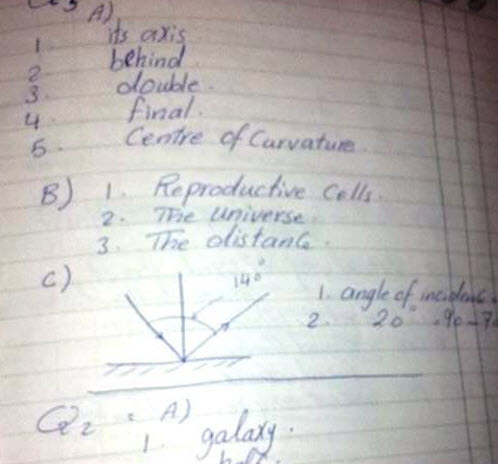 A)
1. its axis
2. behind
3. double.
4. final.
5. Centre of Curvature.
B) 1. Reproductive Cells.
2. The universe.
3. The distance.
C)
14°
1. angle of
2. 20°
Q2 : A)
1. galaxy.